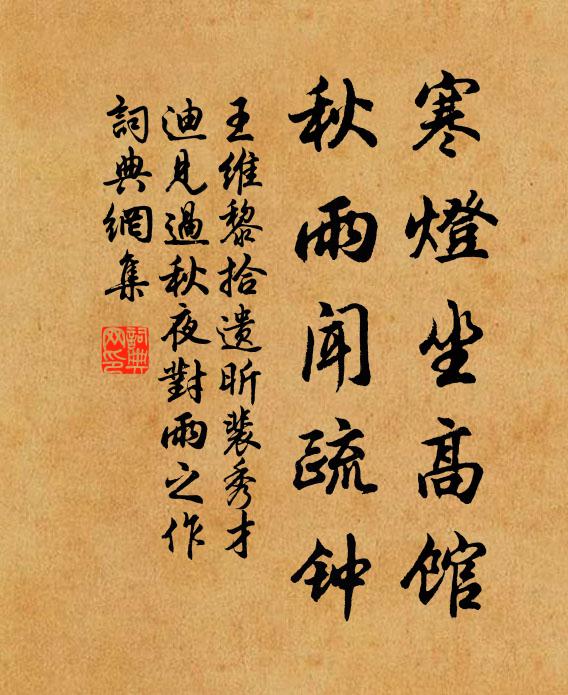 寒燈坐高馆
秋雨闻疏钟
王维黎拾遗昕裴秀才
迪見過秋夜對雨之作
詞典網集
詞典
网印